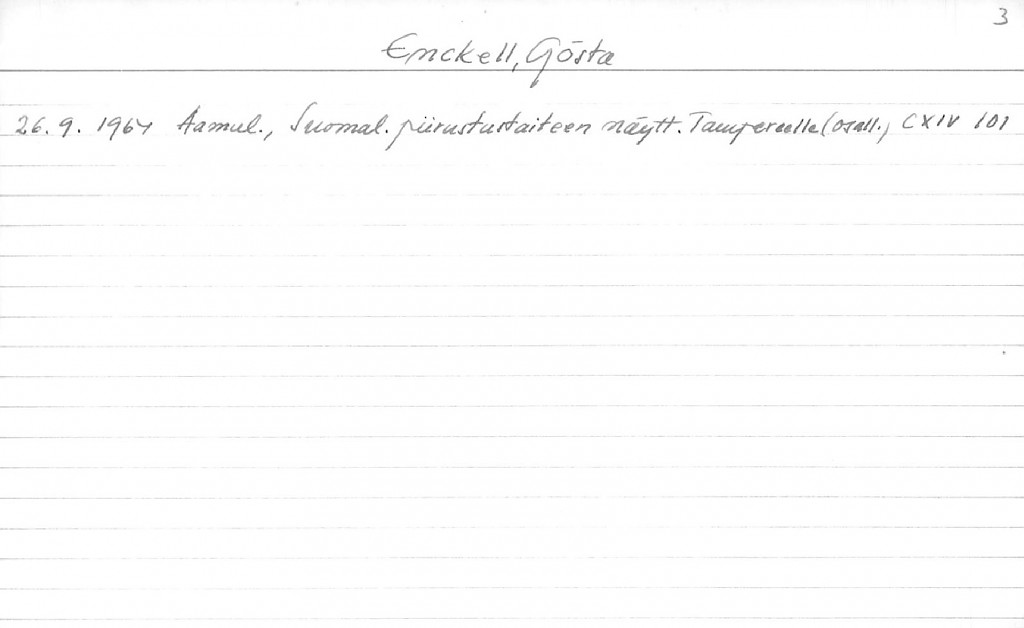 3
Enckell, Gösta
26. 9. 1964 Aamul., Suomal. piirustustaiteen näytt. Tampereelle (osall., CXIV 101